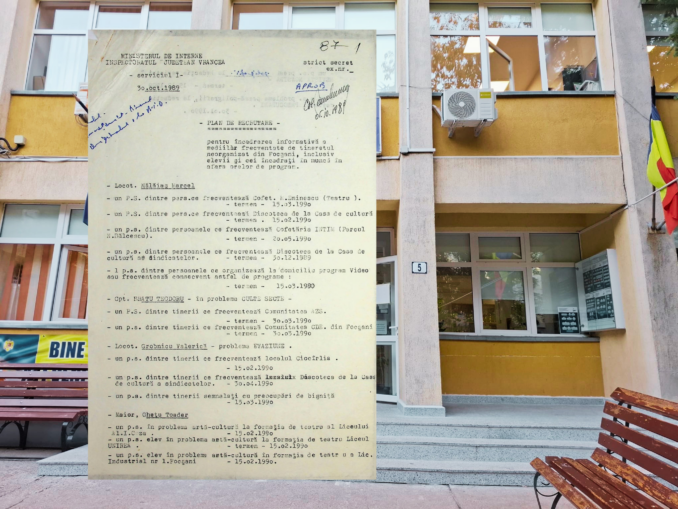 87 1
MINISTERUL DE INTERNE
INSPECTORATUL JUDETEAN VRANCEA
strict secret
ex.nr.
- serviciul I-
30.oct.1989
APROB
- PLAN DE RECRUTARE -
pentru încadrarea informativă a
mediilor frecventate de tineretul
neorganizat din Focşani, inclusiv
elevii şi cei încadraţi în muncă în
afara orelor de program.
- Locot.
- un P.S. dintre pers.ce frecventează Cofet. M.Eminescu (Teatru ).
- termen - 15.03.1990
- un P.S. dintre pers.ce frecventează Discoteca de la Casa de cultură
- termen - 15.02.1990
- un p.s. dintre persoanele ce frecventează Cofetăria
N.Bălcescu).
- termen - 20.05.1990
- un p.s. dintre persoanele ce frecventează Discoteca de la Casa de
cultură a sindicatelor.
- termen - 30.12.1989
- 1 p.s. dintre persoanele ce organizează la domiciliu program Video
sau frecventează consecvent astfel de programe :
- termen - 15.03.1990
- Cpt. - în problema CULTE SECTE -
- un P.S. dintre tinerii ce frecventează Comunitatea
- termen - 30.03.1990
- un p.s. dintre tinerii ce frecventează Comunitatea din Focşani
- termen - 30.03.1990
- Locot. - problema EVAZIUNE .
- un p.s. dintre tinerii ce frecventează localul Ciocîrlia .
- 15.02.1990
- un p.s. dintre tinerii ce frecventează Discoteca de la Casa
de cultură a sindicatelor. - 30.04.1990
- un p.s. dintre tinerii semnalaţi cu preocupări de
- 15.03.1990
- Maior, Toader
- un p.s. în problema artă-cultură la formaţia de teatru al Liceului
- 15.02.1990
- un p.s. elev în problema artă-cultură la formaţia de teatru Liceul
UNIREA . - termen - 15.02.1990
- un p.s. elev în problema artă-cultură în formaţia de teatru a Lic.
Industrial nr 1.Focşani - 15.02.1990.
5
BINE